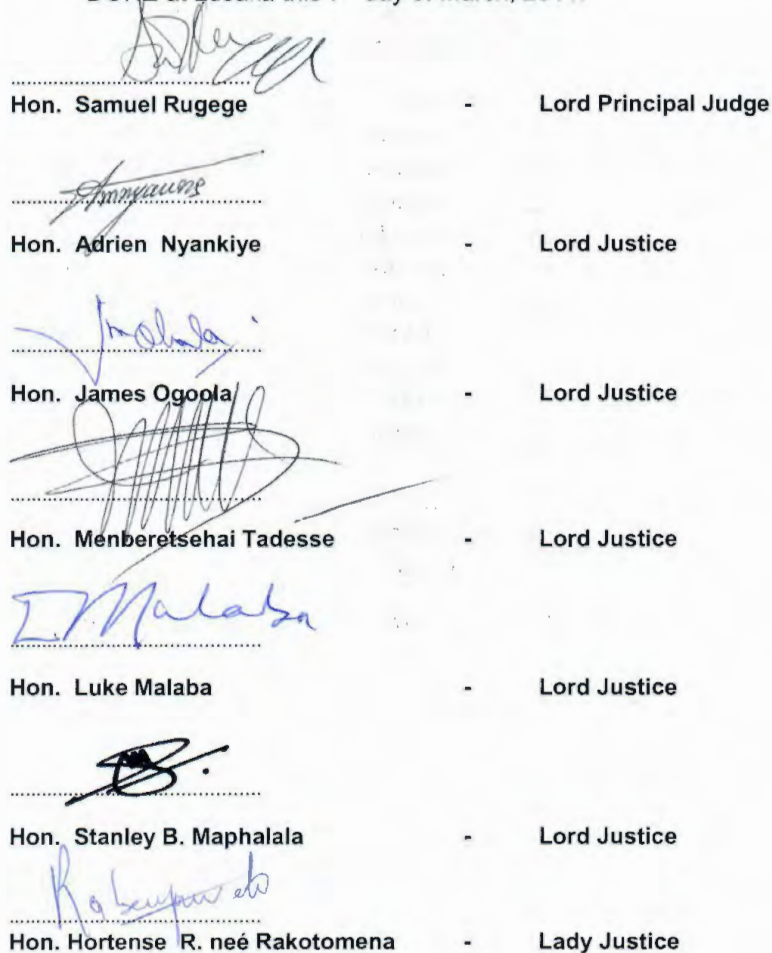 day of March,
Hon. Samuel Rugege - Lord Principal Judge
Hon. Adrien Nyankiye - Lord Justice
Hon. James Ogoola - Lord Justice
Hon. Menberetsehai Tadesse - Lord Justice
Malaba
Hon. Luke Malaba - Lord Justice
Hon. Stanley B. Maphalala - Lord Justice
Hon. Hortense R. neé Rakotomena - Lady Justice